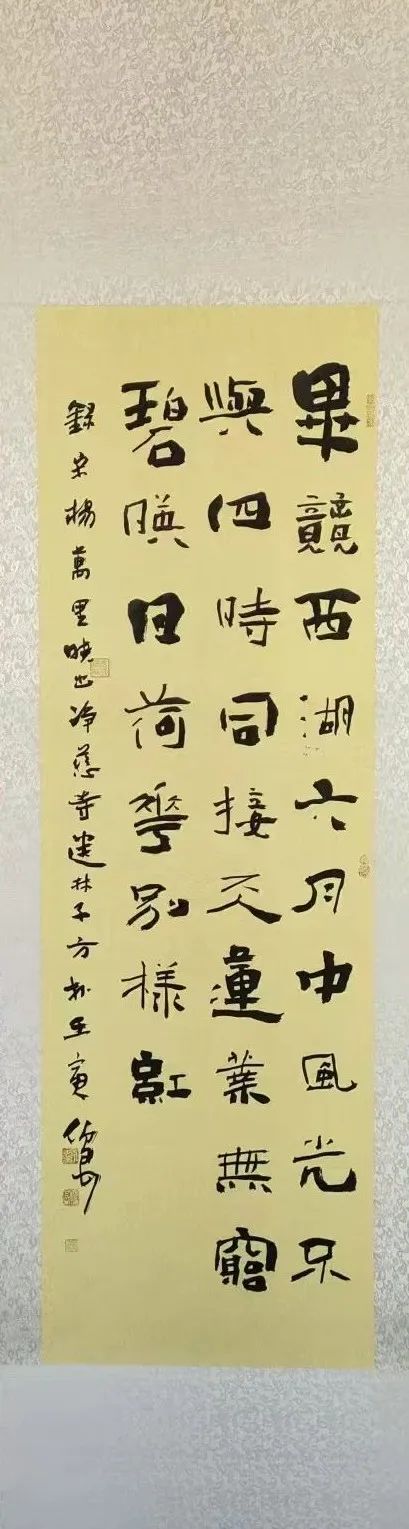 畢競西湖六月中風光不
與四時同接天蓮葉無窮
碧暎日荷華別樣紅
錄宋楊萬里曉出净慈寺送林子方於壬寅